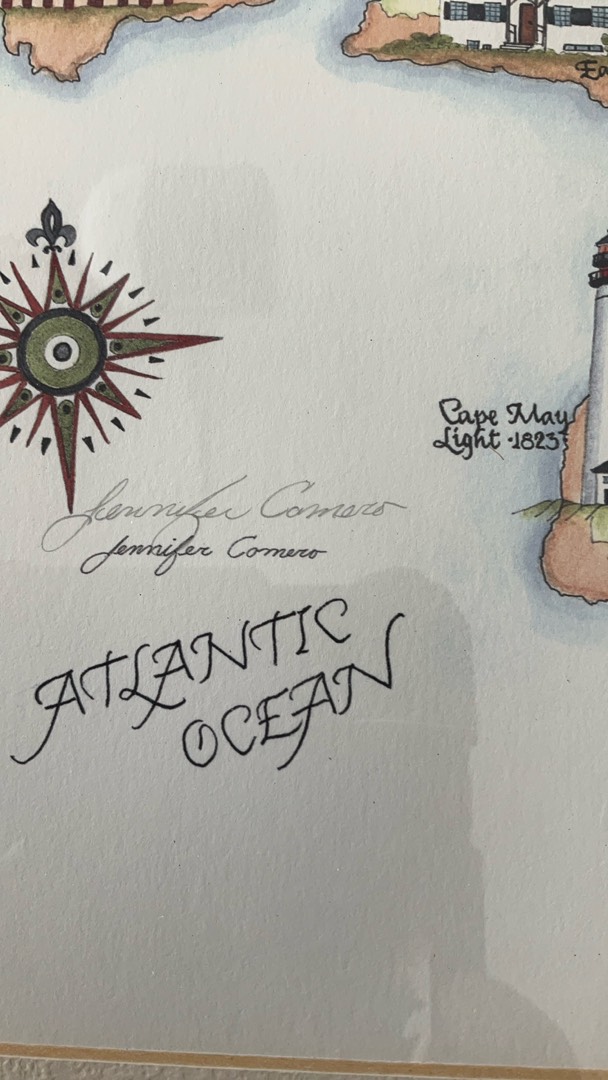 Cape May
Light · 1823
Jennifer Comero
Jennifer Comero
ATLANTIC
OCEAN